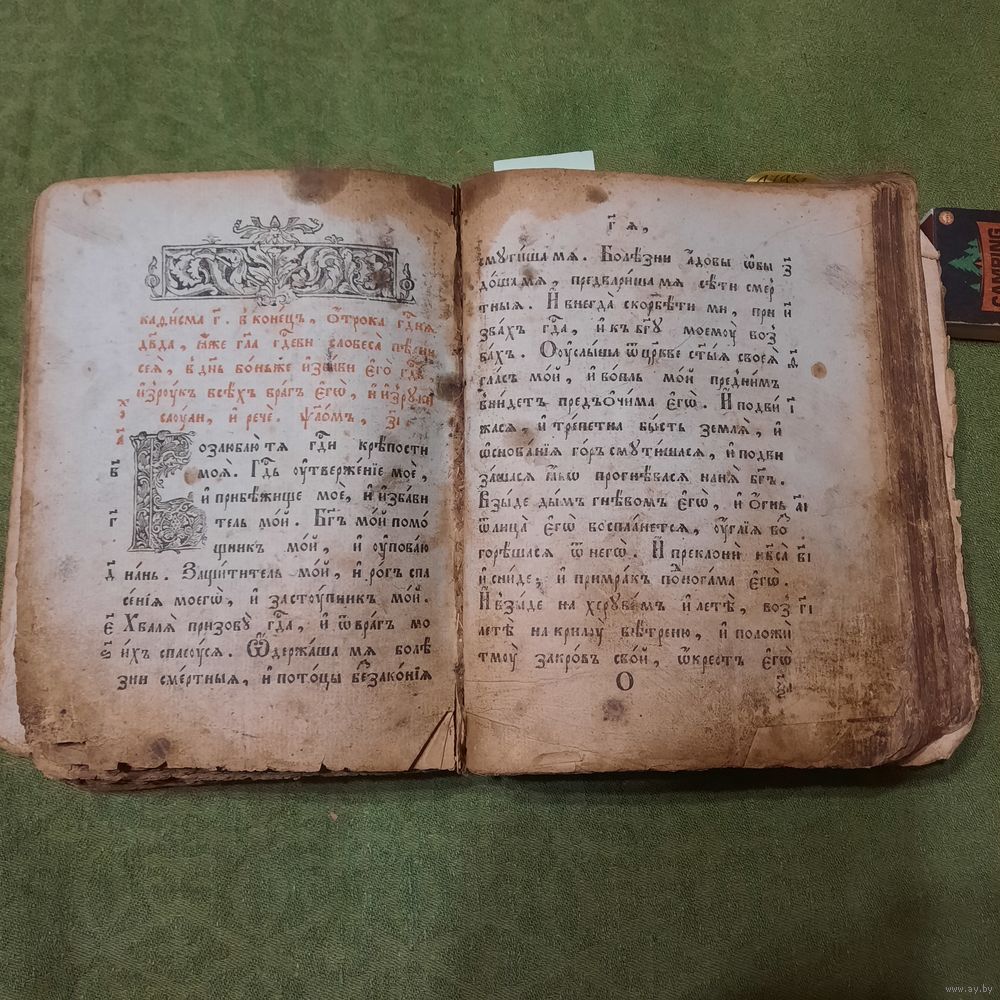 каѳисма г҃. в конецъ, Ѻтрока гдⷭ҇ня
дв҃да, ꙗ҆́же гла гдⷭ҇еви словеса пѣсни
сея̀, в дн҃ь во́ньже и҆зба́ви є҆го̀ гдⷭ҇ь,
и҆ зрꙋ́къ всѣ́хъ вра́гъ є҆гѡ̀, и҆ и҆зрꙋки̑
саоу́ли, и҆ речѐ. ѱало́мъ, з҃і.
а҃
Возлюблю́ тя гдⷭ҇и крѣ́пости
в҃ моя̀. Гдⷭ҇ь оу҆твержде́нїе моѐ,
и҆ прибѣ́жище моѐ, и҆ и҆зба́ви
г҃ тель мо́й. Бг҃ъ мо́й помо́
щникъ мо́й, и҆ оу҆пова́ю
д҃ на́нь. Защи́титель мо́й, и҆ ро́гъ спа
се́нїя моегѡ̀, и҆ засто́упникъ мо́й.
є҃ Хваля̀ призовꙋ̀ гдⷭ҇а, и҆ ѿ вра́гъ мо
ѕ҃ и́хъ спасꙋ́ся. Ѡ҆держа́ша мя болѣ́
зни сме́ртныя, и҆ пото́цы беззако́нїя
г҃ я,
смути́ша мя. Болѣ́зни а҆́довы ѡ҆бы з҃
до́ша мя, предвари́ша мя сѣ́ти сме́р
тныя. И҆ внегда̀ скорбѣ́ти ми, при и҃
зва́хъ гдⷭ҇а, и҆ къ бг҃ꙋ моемꙋ̀ воз
ва́хъ. Оу҆слы́ша ѿ цр҃кве ст҃ы́я своея̀
гла́съ мо́й, и҆ во́пль мо́й пред ни́мъ
вни́детъ пред ѻ҆чи́ма є҆гѡ̀. И҆ подви́ і҃
жася, и҆ тре́петна бы́сть земля̀, и҆
ѡ҆снова́нїя го́ръ смути́шася, и҆ подви
за́шася ꙗ҆́кѡ прогнѣ́вася на ня̀ бг҃ъ.
Взы́де ды́мъ гнѣ́вомъ є҆гѡ̀, и҆ ѻ҆́гнь а҃і
ѿ лица̀ є҆гѡ̀ воспла́нется, оу҆́глїя во
згорѣ́шася ѿ негѡ̀. И҆ преклонѝ нб҃са̀ в҃і
и҆ сни́де, и҆ примра́къ под нога́ма є҆гѡ̀.
И҆ взы́де на херꙋви́мъ и҆ летѣ̀, воз г҃і
летѣ̀ на крилꙋ̀ вѣ́треню, и҆ положѝ
тмꙋ̀ закро́въ сво́й, ѡ҆́крестъ є҆гѡ̀
О
CAMPING
www.ay.by